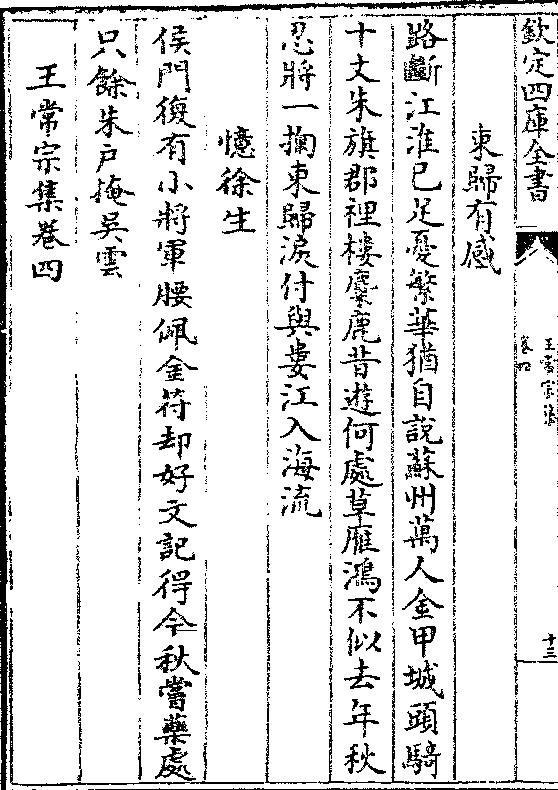 欽定四庫全書
王常宗集
卷四
十三
東歸有感
路斷江淮已足憂繁華猶自說蘇州萬人金甲城頭騎
十丈朱旗郡裡樓麋鹿昔遊何處草雁鴻不似去年秋
忍將一掬東歸淚付與婁江入海流
憶徐生
侯門復有小將軍腰佩金符却好文記得今秋嘗藥處
只餘朱戸掩吳雲
王常宗集卷四